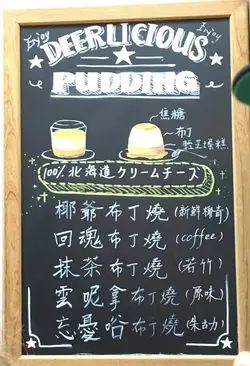 Enjoy Enjoy
DEERLICIOUS
PUDDING
焦糖
布丁
100%北海道クリームチーズ
椰爺布丁燒(新鮮椰奇)
回魂布丁燒(coffee)
抹茶布丁燒(若竹)
雲呢拿布丁燒(原味)
忘憂谷布丁燒(朱古力)